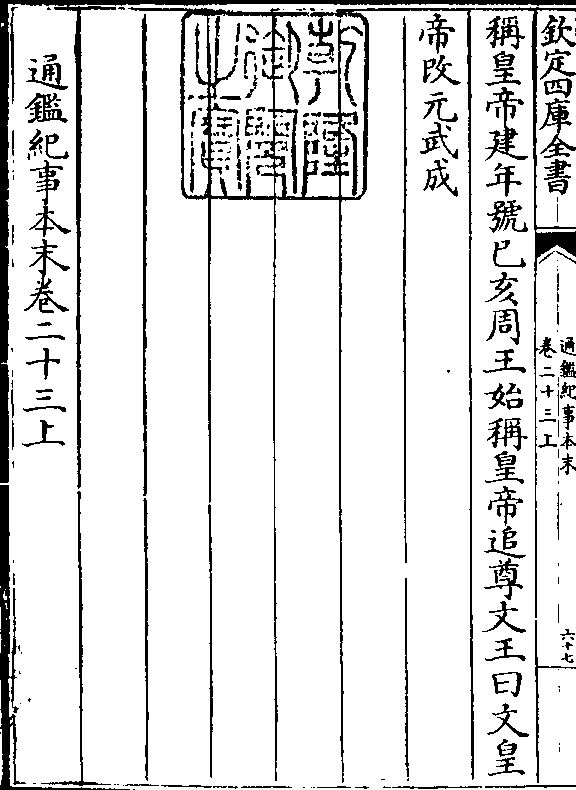 欽定四庫全書
通鑑紀事本末
卷二十三上
六十七
稱皇帝建年號己亥周王始稱皇帝追尊文王曰文皇
帝改元武成
乾隆御覽之寶
通鑑紀事本末卷二十三上